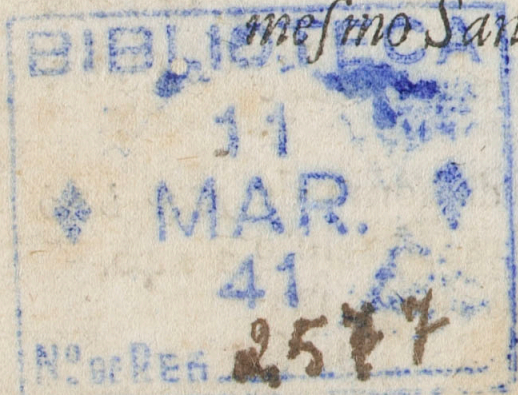 mesmo San
BIBLIOTECA
11
MAR.
41
Nº DE REG. 2577